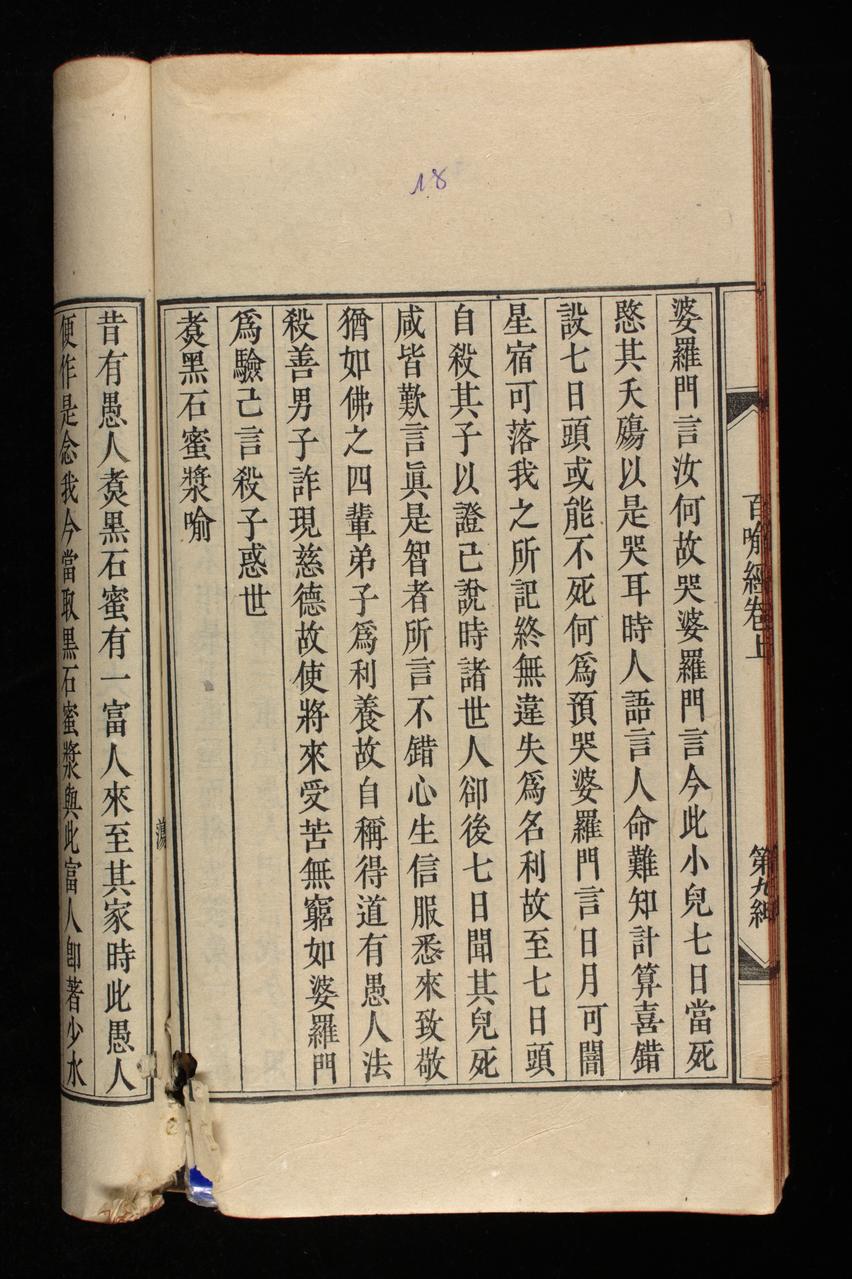 18
百喻經卷上
第九紙
婆羅門言汝何故哭婆羅門言今此小兒七日當死
愍其夭殤以是哭耳時人語言人命難知計算喜錯
設七日頭或能不死何爲預哭婆羅門言日月可闇
星宿可落我之所記終無違失爲名利故至七日頭
自殺其子以證己說時諸世人卻後七日聞其兒死
咸皆歎言眞是智者所言不錯心生信服悉來致敬
猶如佛之四輩弟子爲利養故自稱得道有愚人法
殺善男子詐現慈德故使將來受苦無窮如婆羅門
爲驗己言殺子惑世
煑黑石蜜漿喻
昔有愚人煑黑石蜜有一富人來至其家時此愚人
便作是念我今當取黑石蜜漿與此富人卽著少水